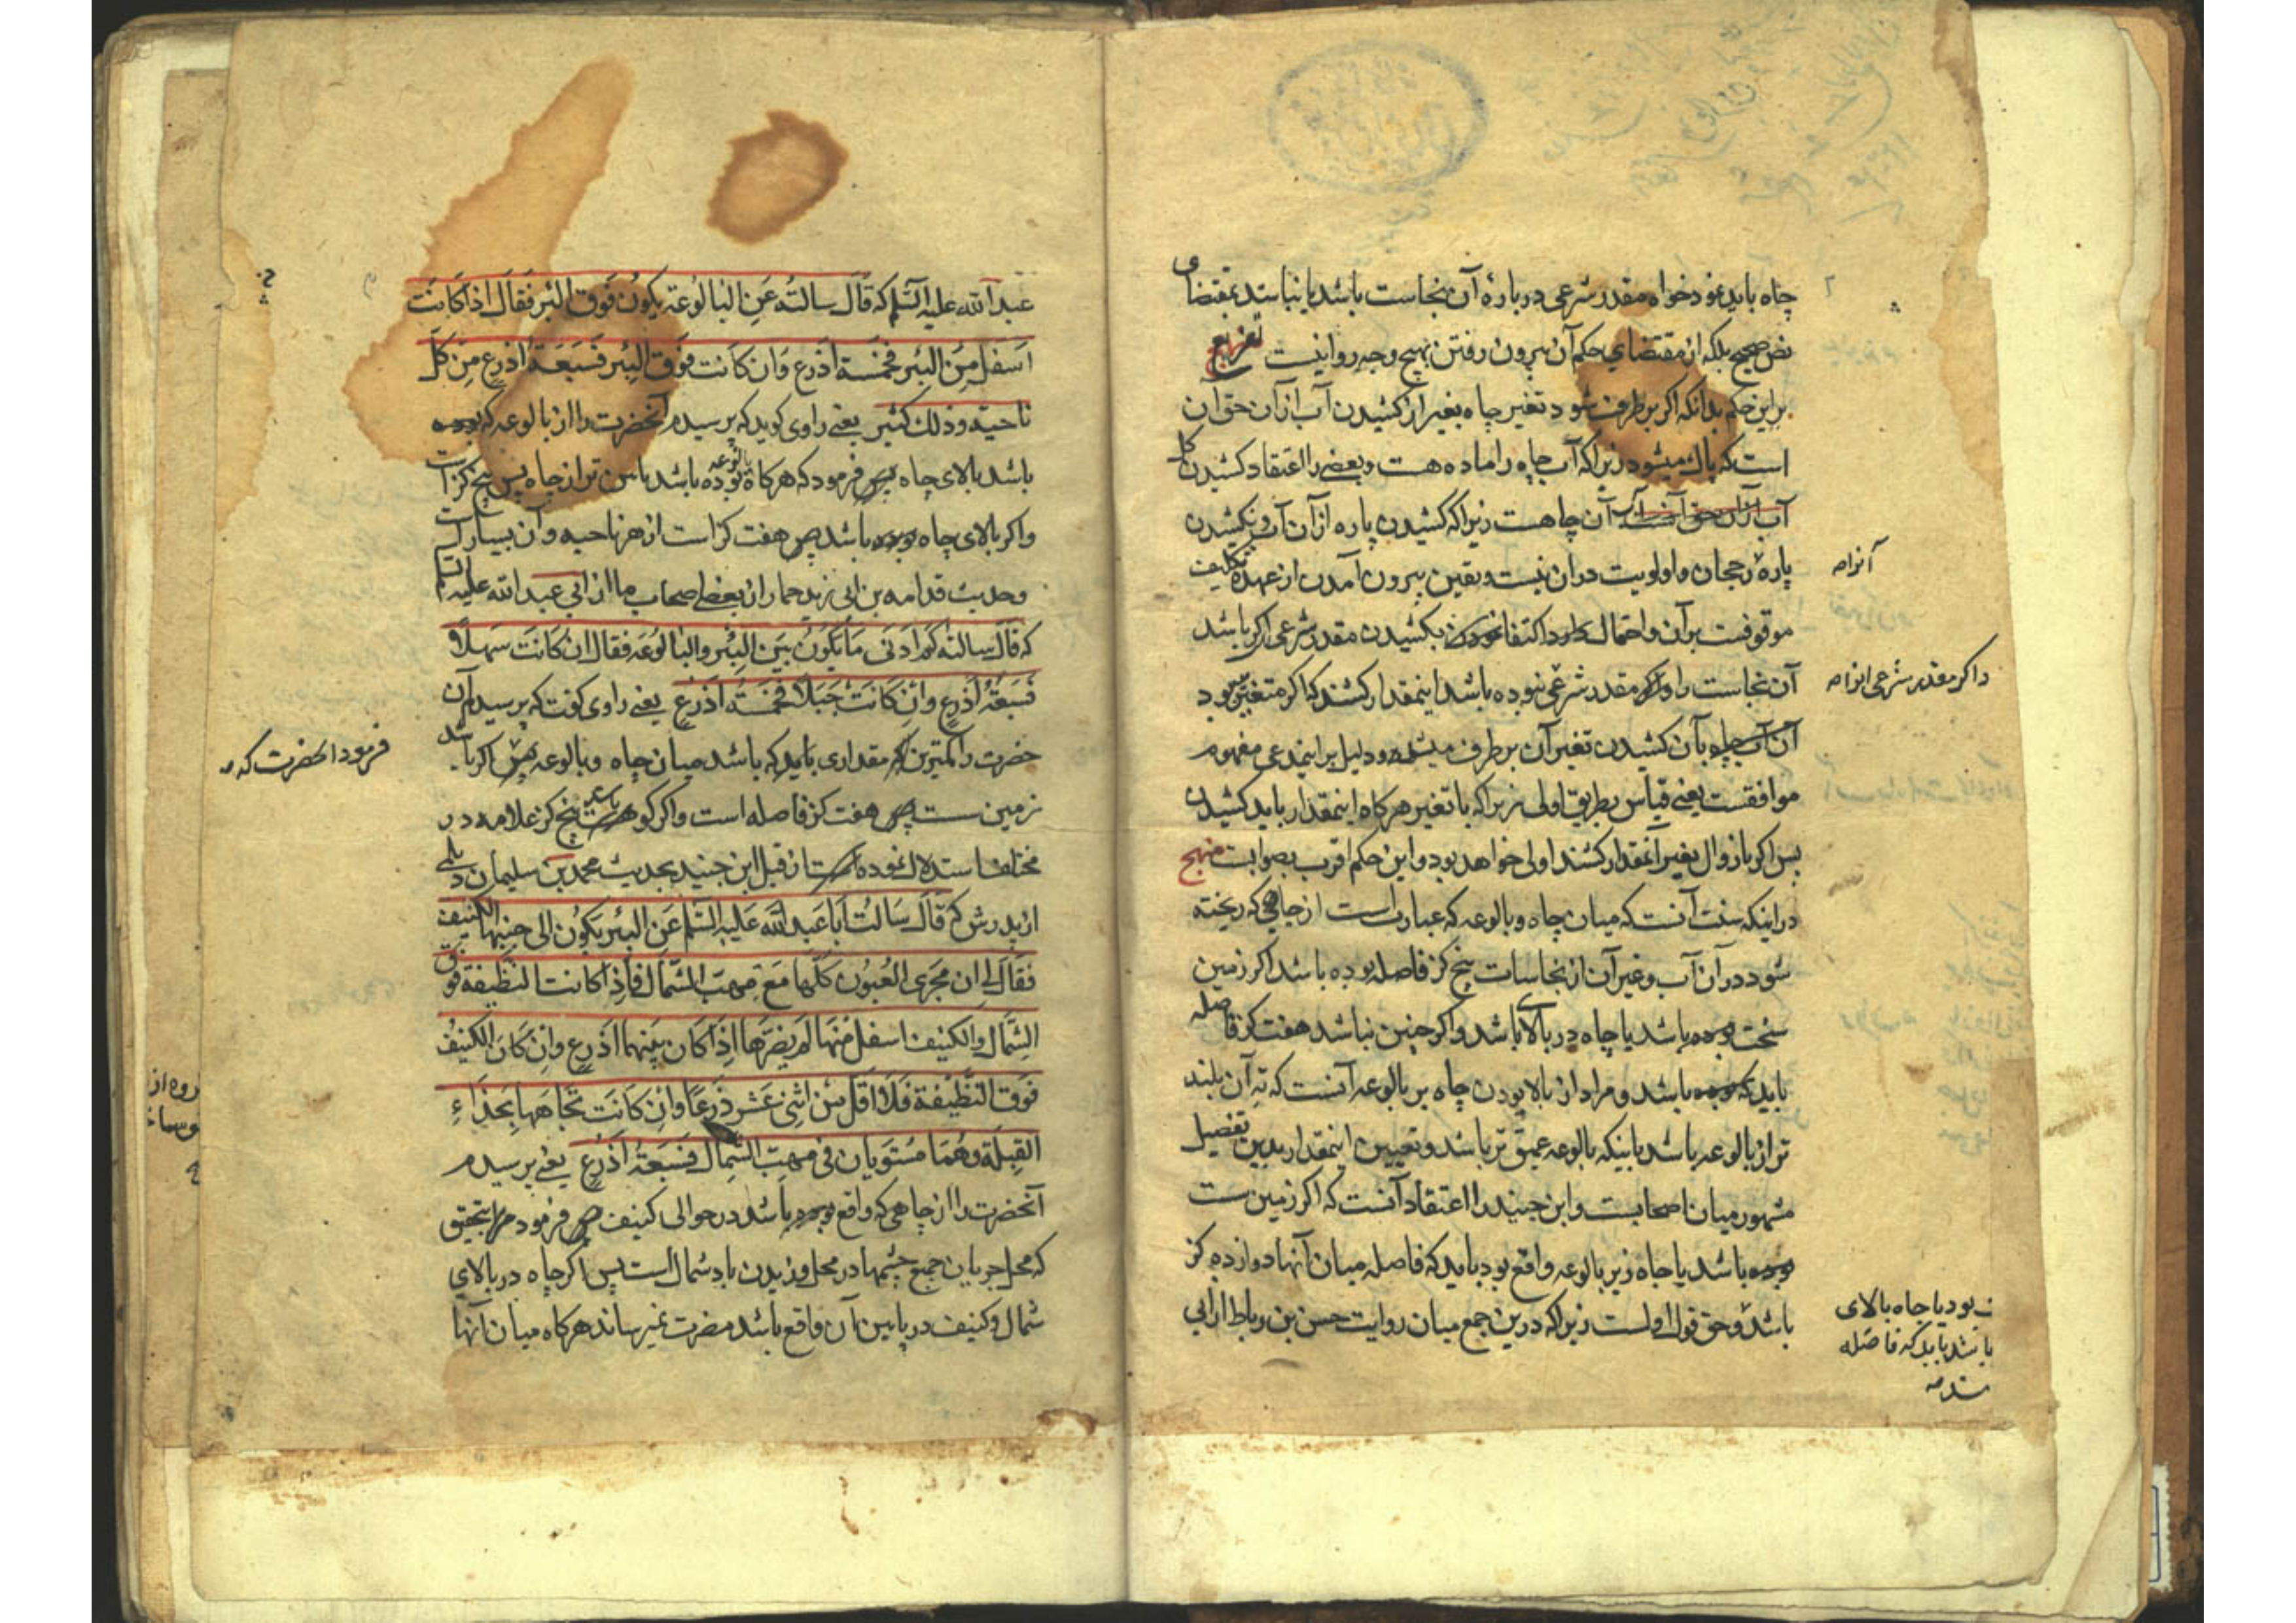 چاه باید نمود خواه مقدر شرعی در بارهٔ آن نجاست باشد یا نباشد بمقتضای
نص صحیح بلکه از مقتضای حکم آن بیرون رفتن بهیچ وجه روا نیست تفریع
بر این حکم بدانکه اگر بر طرف شود تغیر چاه بغیر از کشیدن آب از آن حق آن
است که پاک میشود زیرا که آب چاه را ماده هست و بعضی را اعتقاد کشیدن کل
آب آن چاهست زیرا که کشیدن پاره از آن آب و نکشیدن
پارهٔ رجحان و اولویت در آن نیست و یقین بیرون آمدن از عهدهٔ تکلیف
موقوفست بر آن و احتمال دارد اکتفا نمودن بکشیدن مقدر شرعی اگر باشد
آن نجاست را و اگر مقدر شرعی نبوده باشد اینمقدار کشند که اگر متغیر بود
آن آب چاه بآن کشیدن تغیر آن بر طرف میشد و دلیل بر اینمدعی مفهوم
موافقست یعنی قیاس بطریق اولی زیرا که با تغیر هرگاه اینمقدار باید کشیدن
پس اگر با زوال تغیر آنمقدار کشند اولی خواهد بود و این حکم اقرب بصوابست منهج
در اینکه سنت آنست که میان چاه و بالوعه که عبارت است از جاهی که ریخته
شود در آن آب و غیر آن از نجاسات پنج گز فاصله بوده باشد اگر زمین
سخت بوده باشد یا چاه در بالای باشد و اگر چنین نباشد هفت گز فاصله
باید که بوده باشد و مراد از بالا بودن چاه بر بالوعه آنست که ته آن بلند
تر از بالوعه باشد باینکه بالوعه عمیق تر باشد و تعیین اینمقدار بدین تفصیل
مشهور میان اصحابست و ابن جنید را اعتقاد آنست که اگر زمین سست
بوده باشد یا چاه زیر بالوعه واقع بود باید که فاصله میان آنها دوازده گز
باشد و حق قول اولست زیرا که درین جمع میان روایت حسن بن رباط از ابی
و اگر مقدر شرعی
ب بود یا چاه بالای
باشد باید که فاصله
عبد الله علیه السلم که قال سالته عن البالوعة یکون فوق البئر فقال اذا کانت
اسفل من البئر فخمسة اذرع وان کانت فوق البئر فسبعة اذرع من کل
ناحیة وذلك کثیر یعنی راوی گوید که پرسیدم آنحضرت را از بالوعه که بوده
باشد بالای چاه پس فرمود که هرگاه بالوعه بوده باشد پائین تر از چاه پس پنج گز است
و اگر بالای چاه بوده باشد پس هفت گز است از هر ناحیه و آن بسیار است
و حدیث قدامه بن ابی زید حمار از بعض اصحاب ما از ابی عبد الله علیه السلم
که قال سالته کم ادنی ما یکون بین البئر والبالوعه فقال ان کانت سهلا
فسبعة اذرع وان کانت جبلا فخمسة اذرع یعنی راوی گفت که پرسیدم آن
حضرت را کمترین مقداری باید که باشد میان چاه و بالوعه پس اگر باشد
زمین سست پس هفت گز فاصله است و اگر کوه باشد پنج گز علامه در
مختلف استدلال نموده است از قبل ابن جنید بحدیث محمد بن سلیمان دیلمی
از پدرش که قال سالت ابا عبد الله علیه السلم عن البئر یکون الی جنبها الکنیف
فقال لی ان مجری العیون کلها مع مهب الشمال فاذا کانت النظیفة فوق
الشمال والکنیف اسفل منها لم یضرها اذا کان بینهما اذرع وان کان الکنیف
فوق النظیفة فلا اقل من اثنی عشر ذرعا وان کانت تجاهها بحذاء
القبلة وهما مستویان فی مهب الشمال فسبعة اذرع یعنی پرسیدم
آنحضرت را از چاهی که واقع بوده باشد در حوالی کنیف پس فرمود مرا بتحقیق
که محل جریان جمیع چشمها در محل وزیدن باد شمال است پس اگر چاه در بالای
شمال و کنیف در پایین آن واقع باشد مضرت نمیرساند هرگاه میان آنها
فرمود آنحضرت که